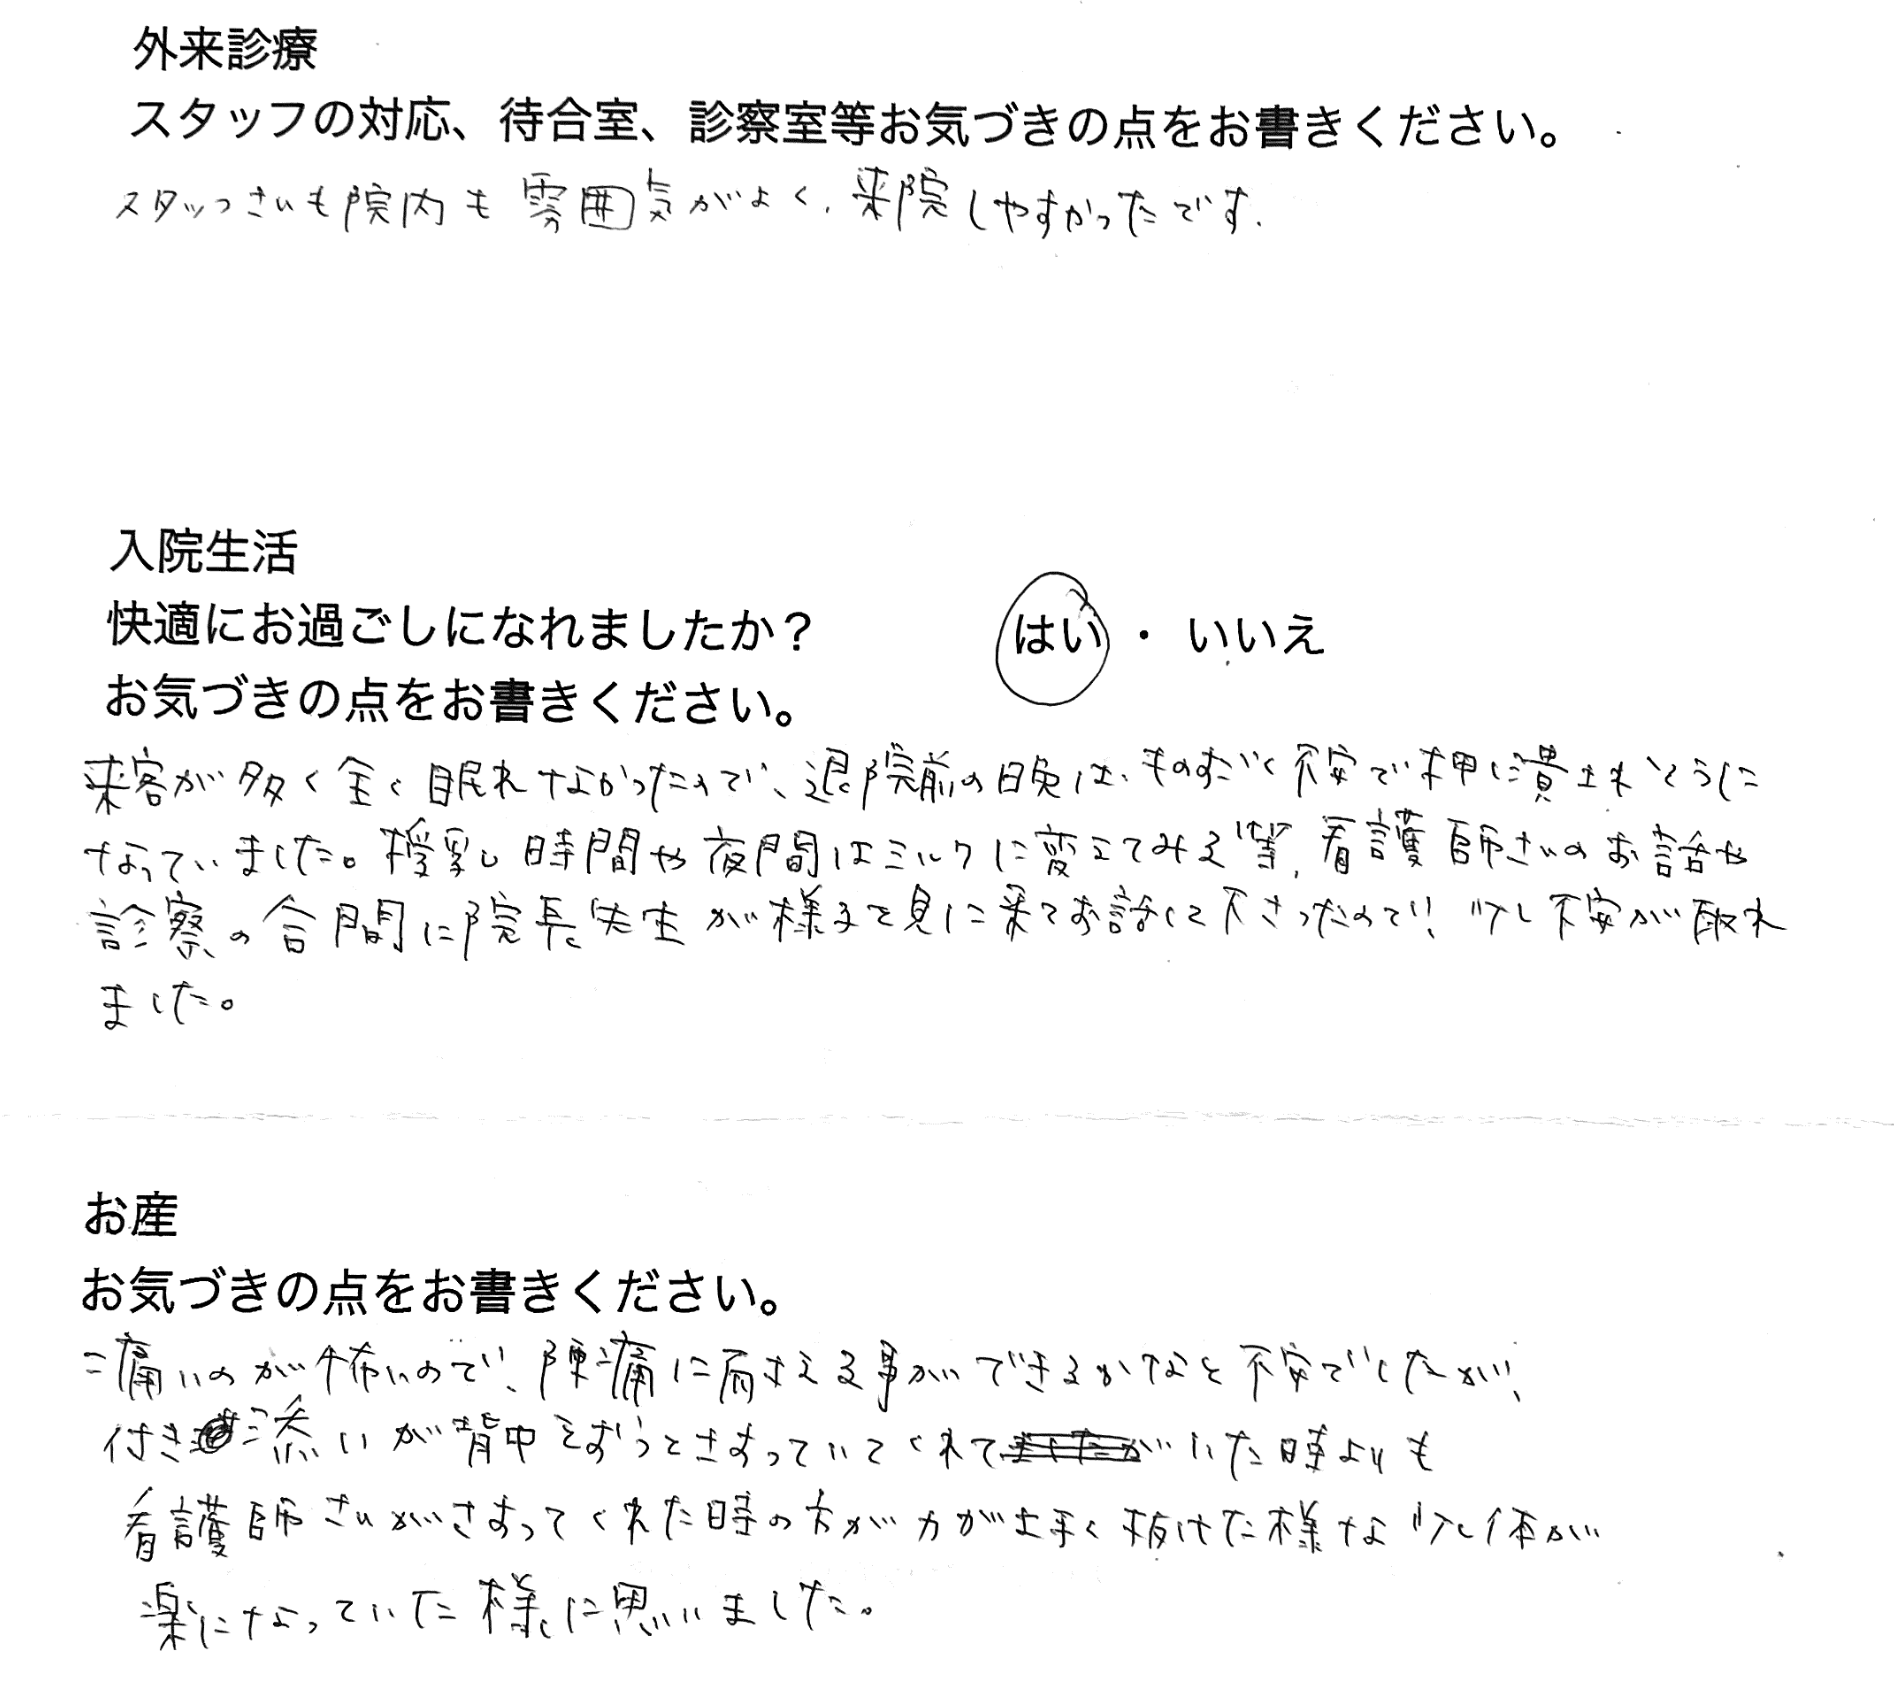 外来診療
スタッフの対応、待合室、診察室等お気づきの点をお書きください。
スタッフさんも院内も雰囲気がよく、来院しやすかったです。
入院生活
快適にお過ごしになれましたか？ はい ・ いいえ
お気づきの点をお書きください。
来客が多く全く眠れなかったので、退院前の晩は、ものすごく不安で押し潰されそうに
なっていました。授乳し時間や夜間はミルクに変えてみる等、看護師さんのお話や
診察の合間に院長先生が様子を見に来てお話して下さったので、少し不安が取れ
ました。
お産
お気づきの点をお書きください。
痛いのが怖いので、陣痛に耐える事ができるかなと不安でしたが、
付き添いが背中をずっとさすっていてくれていた時よりも
看護師さんがさすってくれた時の方が力が上手く抜けた様な少し体が
楽になっていた様に思いました。